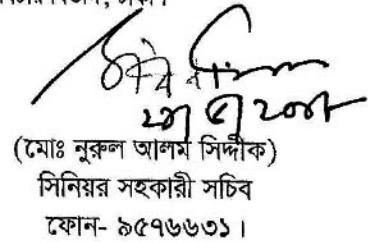 , ঢাকা।
(মোঃ নুরুল আলম সিদ্দীক)
সিনিয়র সহকারী সচিব
ফোন- ৯৫৭৬৬৩১।